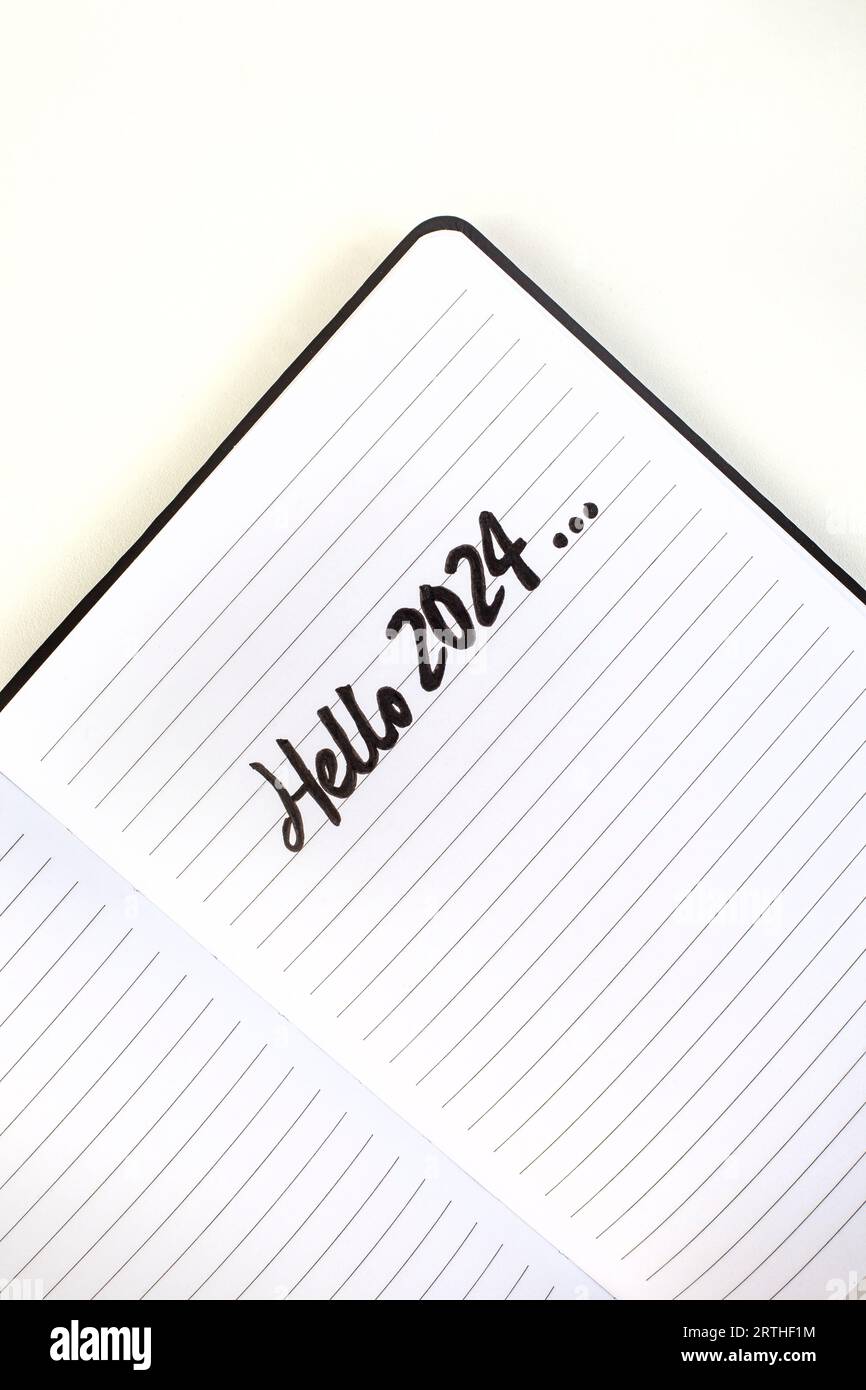 Hello 2024...
alamy
Image ID: 2RTHF1M
www.alamy.com